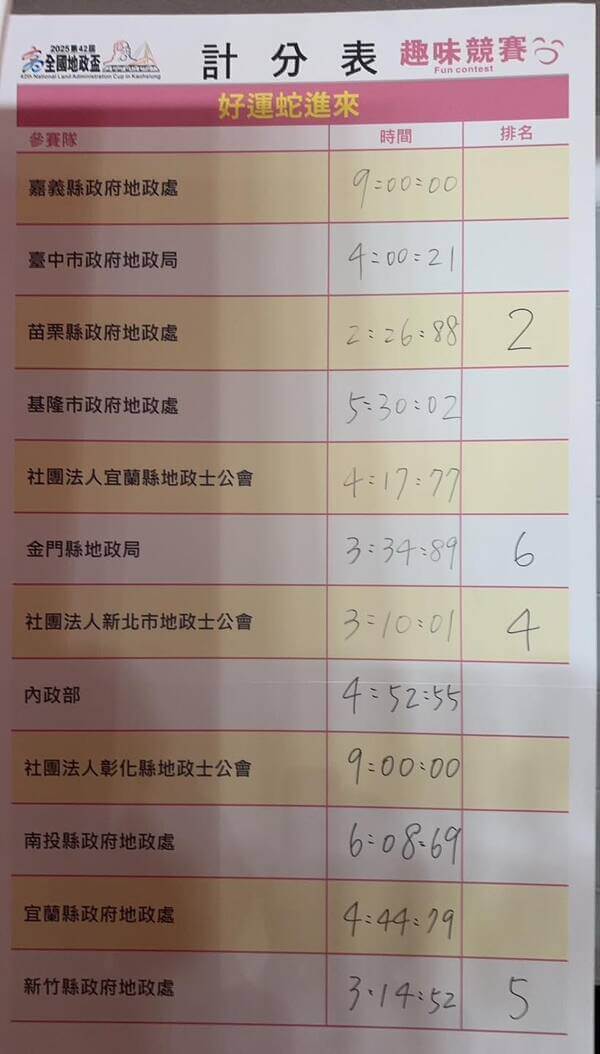 2025第42屆
全國地政盃
42th National Land Administration Cup in Kaohsiung
計分表
趣味競賽
Fun contest
好運蛇進來
參賽隊 時間 排名
嘉義縣政府地政處 9:00:00
臺中市政府地政局 4:00:21
苗栗縣政府地政處 2:26:88 2
基隆市政府地政處 5:30:02
社團法人宜蘭縣地政士公會 4:17:77
金門縣地政局 3:34:89 6
社團法人新北市地政士公會 3:10:01 4
內政部 4:52:55
社團法人彰化縣地政士公會 9:00:00
南投縣政府地政處 6:08:69
宜蘭縣政府地政處 4:44:79
新竹縣政府地政處 3:14:52 5